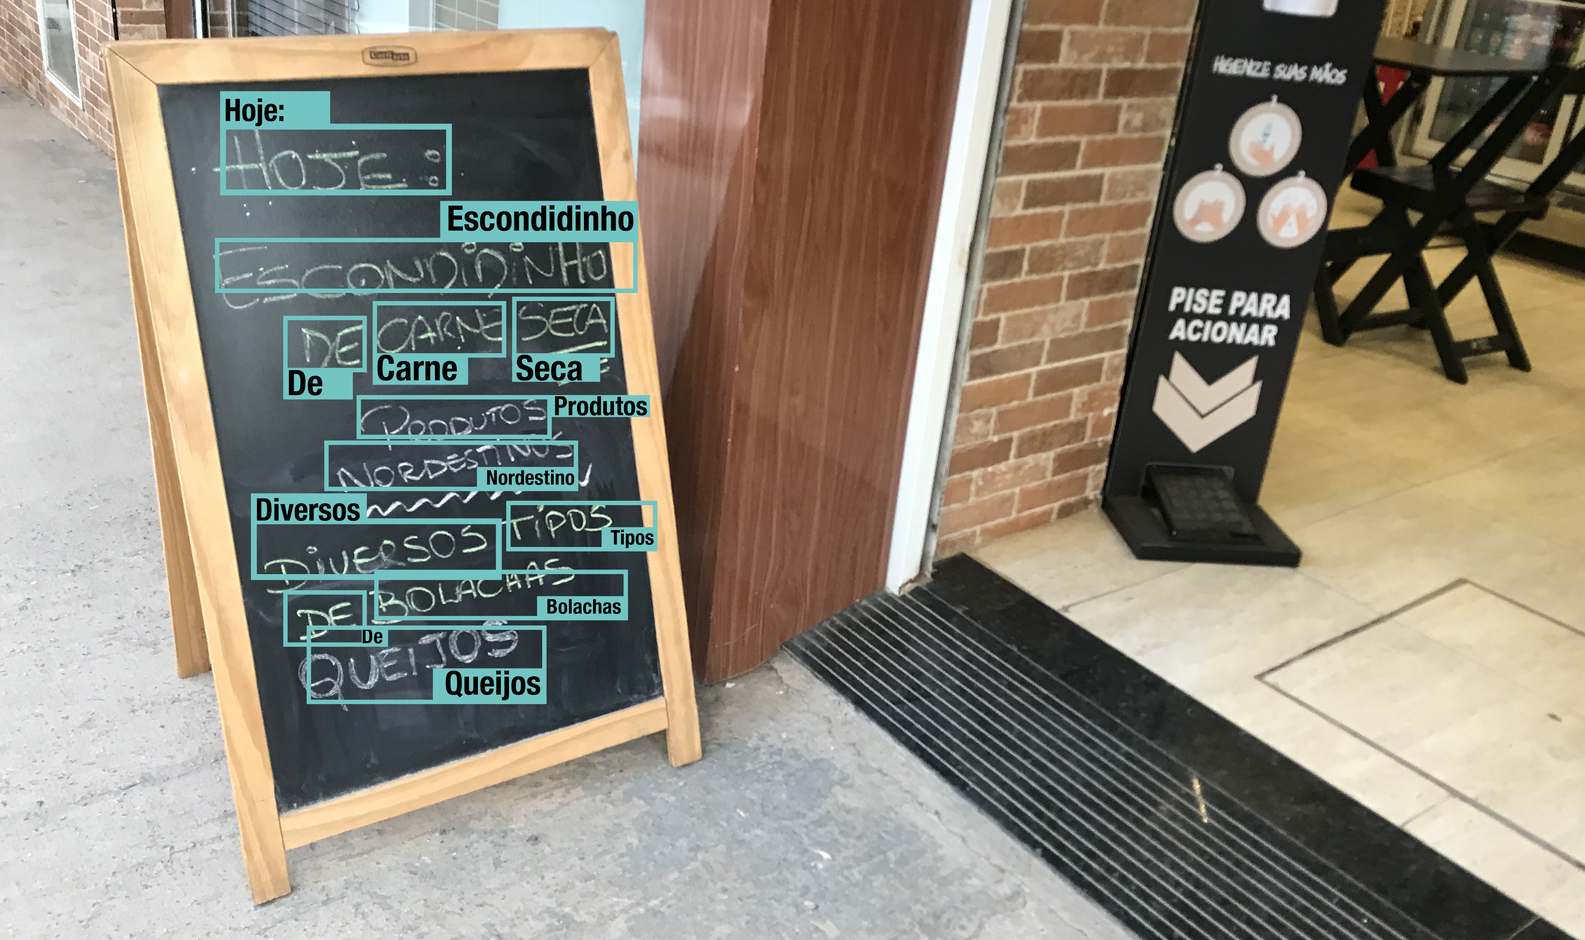 Hoje:
HOJE:
Escondidinho
ESCONDIDINHO
DE CARNE SECA
De Carne Seca
PRODUTOS Produtos
NORDESTINOS
Nordestino
Diversos
DIVERSOS TIPOS
Tipos
DE BOLACHAS
De Bolachas
QUEIJOS
Queijos
HIGIENZE SUAS MÃOS
PISE PARA
ACIONAR